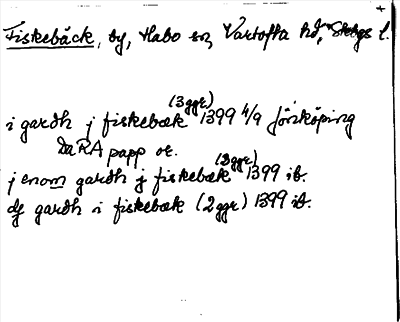 Fiskebäck, by, Habo sn, Vartofta hd, Skbgs l.
(3 ggr)
i gardh j fiskebæk 1399 4/9 Jönköping
DaRA papp or.
(3 ggr)
j enom gardh j fiskebæk 1399 ib.
aff gardh i fiskebæk (2 ggr) 1399 ib.